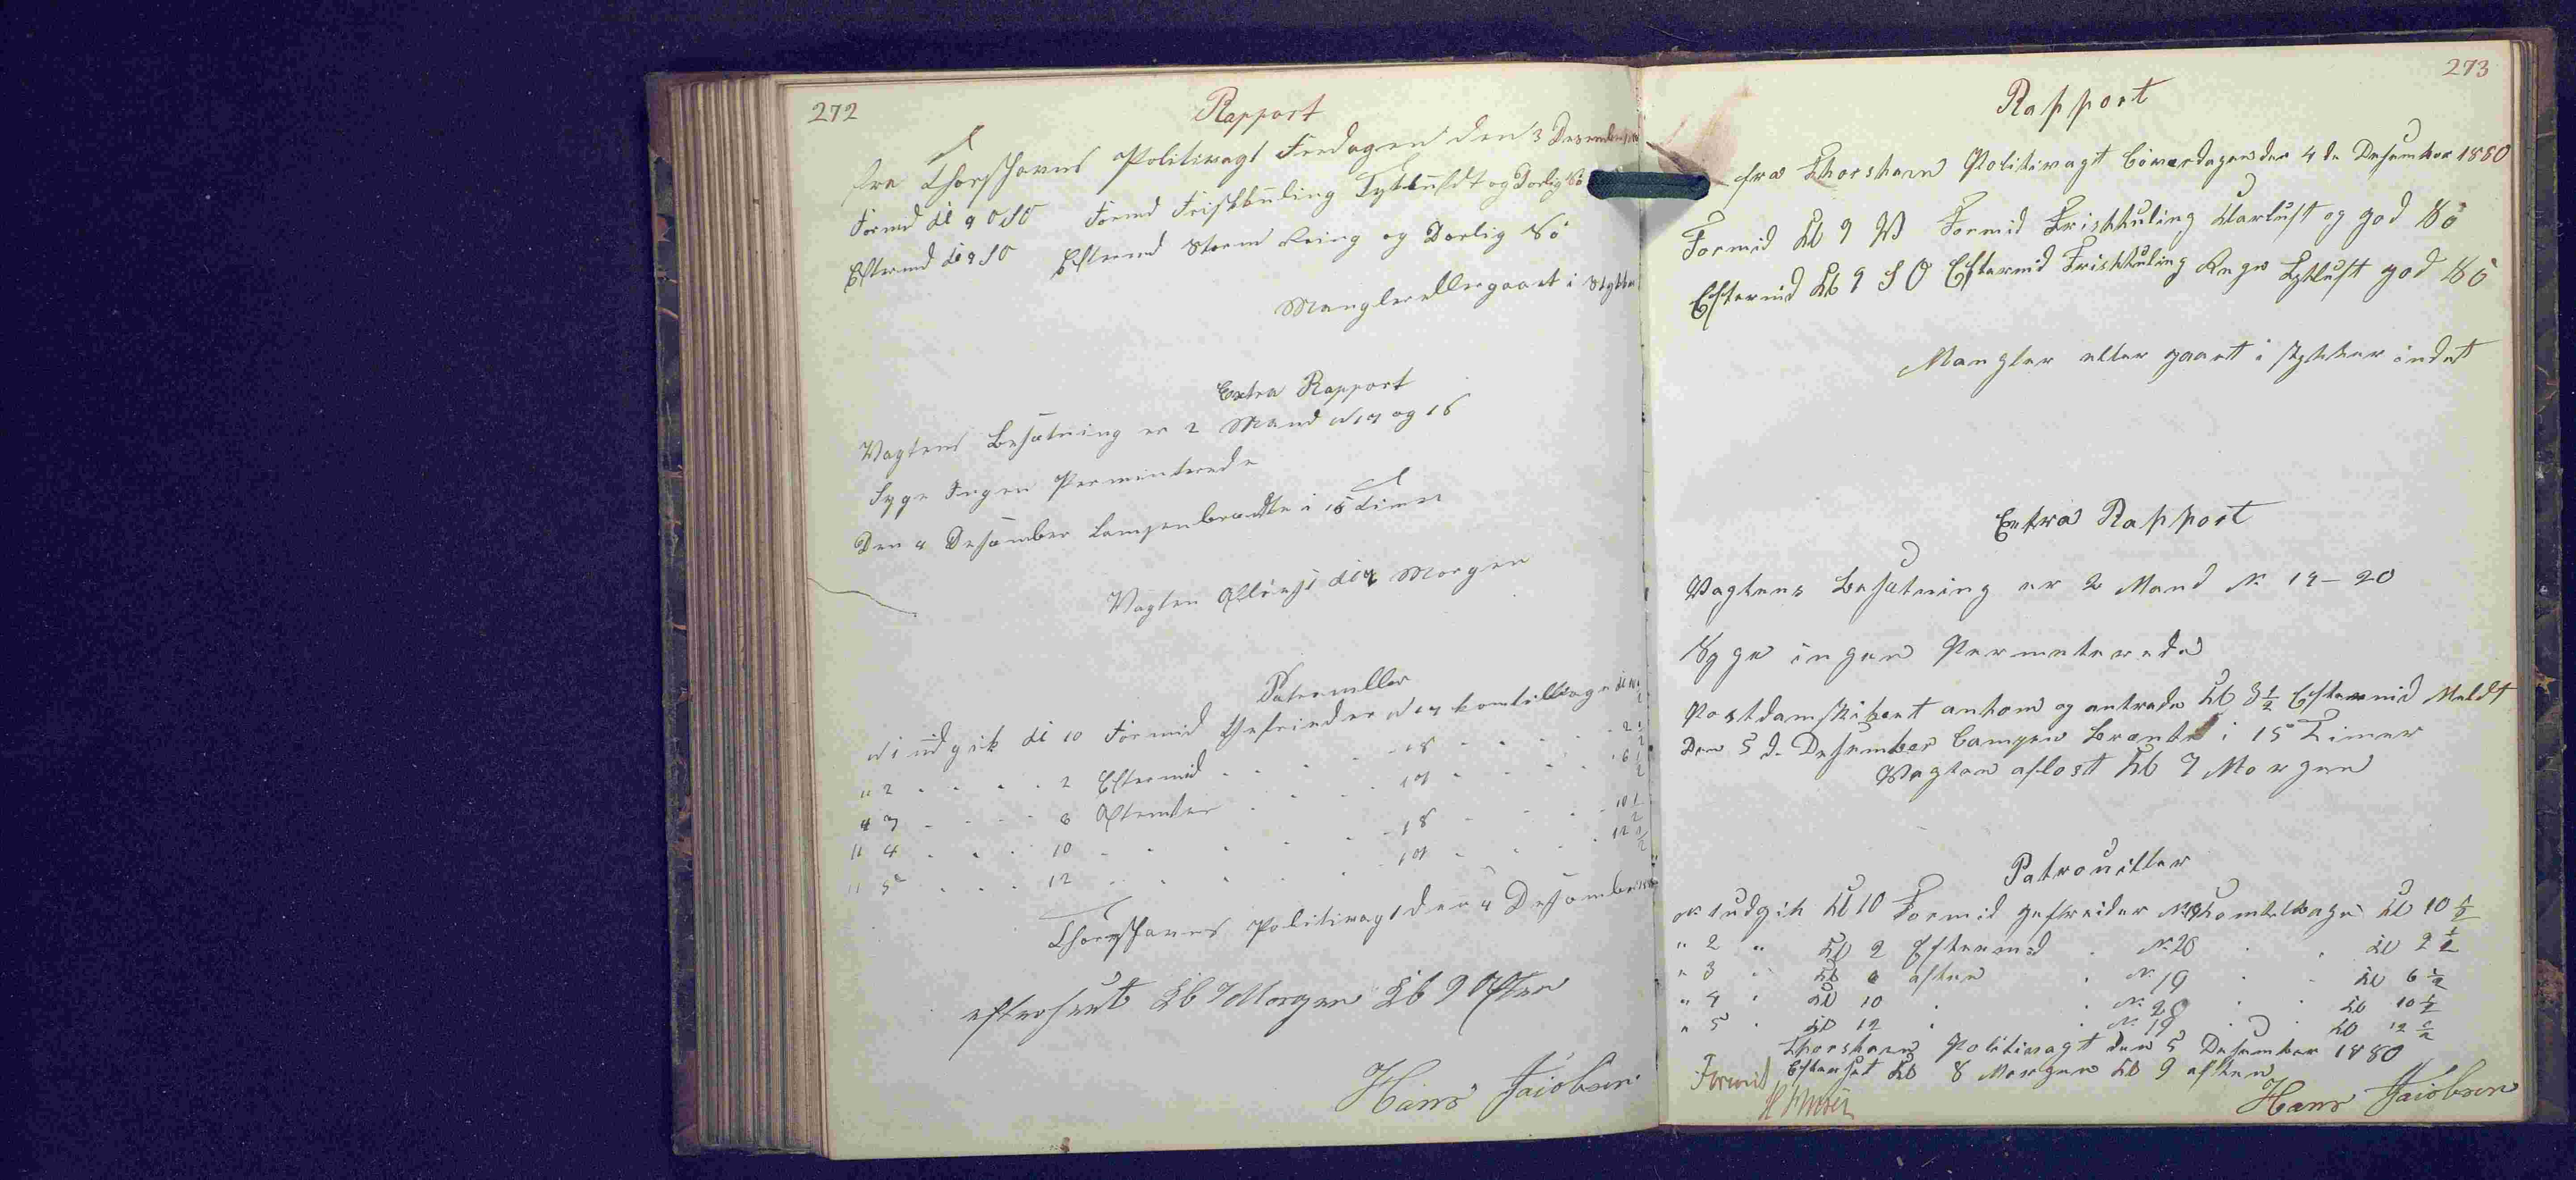 272
Rapport
fra Thorshavns Politivagt Fredagen den 3 Desember
Formd Kl 9 OSO Formd Friskkuling Tykluft og Dorlig Sö
Eftermd Kl 9 SO Eftermd Storm Reing og Dorlig Sö
Mangler eller gaaet i Stykker
Extra Rapport
Vagtens Besætning er 2 Mand N 17 og 18
Syge Ingen Perminterede
Den 4 Desember Lampen brændte i 15 Timer
Vagten Afløst Kl 9 Morgen
Patrouller
N 1 udgik Kl 10 Formid Gefreider N 17 kom tilbage Kl 10 1/2
" 2 . . . . 2 Eftermid . . . . 18 . . . . 2 1/2
" 3 . . . . 6 Aftenter . . . . 17 . . . . 6 1/2
" 4 . . . 10 . . . . 18 . . . 10 1/2
" 5 . . . 12 . . . . 17 . . . 12 1/2
Thorshavns Politivagt den 4 Desember
efterseet Kl 7 Morgen Kl 9 Aften
Hans Jacobsen
273
Rapport
fra Thorshavn Politivagt Löverdagen den 4 de Desember 1880
Formid Kl 9 W Formid Friskkuling Klarluft og god Sö
Eftermid Kl 9 SO Eftermid Friskkuling Regn Tykluft god Sö
Mangler eller gaaet i Stykker indet
Extra Rapport
Vagtens Besætning er 2 Mand N. 19-20
Syge ingen Permeterede
Postdamskibeet ankom og antrade Kl 3 1/2 Eftermid Meldt
Den 5 d. Desember Lampen Brænte i 15 Timer
Vagten aflost Kl 9 Morgen
Patrouiller
N. 1 udgik Kl 10 Formid gefreider N. 19 kom tilbage Kl 10 1/2
" 2 " Kl 2 Eftermid . N. 20 . . Kl 2 1/2
" 3 " Kl 6 aften . N. 19 . . Kl 6 1/2
" 4 " Kl 10 . . N. 20 . . Kl 10 1/2
" 5 . Kl 12 . . N. 19 . . Kl 12 1/2
Thorshavn Politivagt den 5 Desember 1880
Formid Efterset Kl 8 Morgen Kl 9 aften
Hans Jacobsen